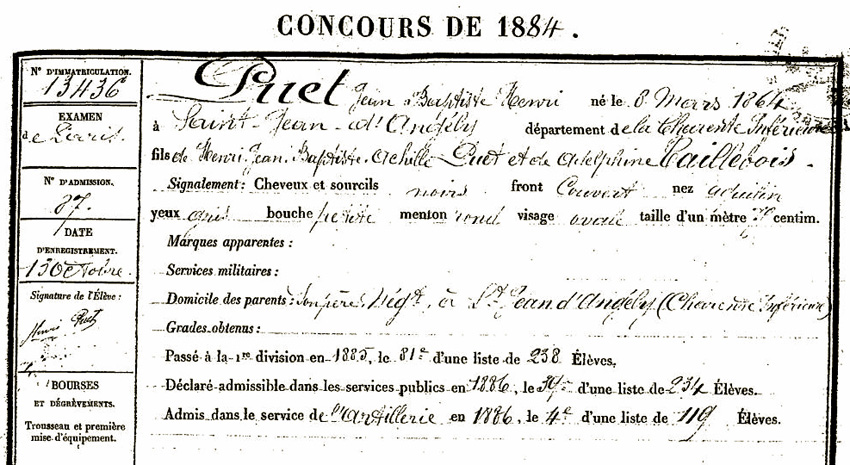 CONCOURS DE 1884.
N° D'IMMATRICULATION.
13436
EXAMEN
de Paris.
N° D'ADMISSION.
87.
DATE
D'ENREGISTREMENT.
13 Octobre.
Signature de l'Élève :
Henri Puet
BOURSES
ET DÉGRÈVEMENTS.
Trousseau et première
mise d'équipement.
Puet Jean Baptiste Henri né le 8 Mars 1864
à Saint-Jean-d'Angély département de la Charente Inférieure
fils de Henri Jean Baptiste Achille Puet et de Adelphine Taillebois.
Signalement : Cheveux et sourcils noirs front Couvert nez aquilin
yeux gris bouche petite menton rond visage ovale taille d'un mètre centim.
Marques apparentes :
Services militaires :
Domicile des parents : Son père Nég.t à St Jean d'Angély (Charente Inférieure)
Grades obtenus :
Passé à la 1re division en 1885, le 81e d'une liste de 238 Élèves.
Déclaré admissible dans les services publics en 1886, le 39e d'une liste de 234 Élèves.
Admis dans le service de l'Artillerie en 1886, le 4e d'une liste de 119 Élèves.